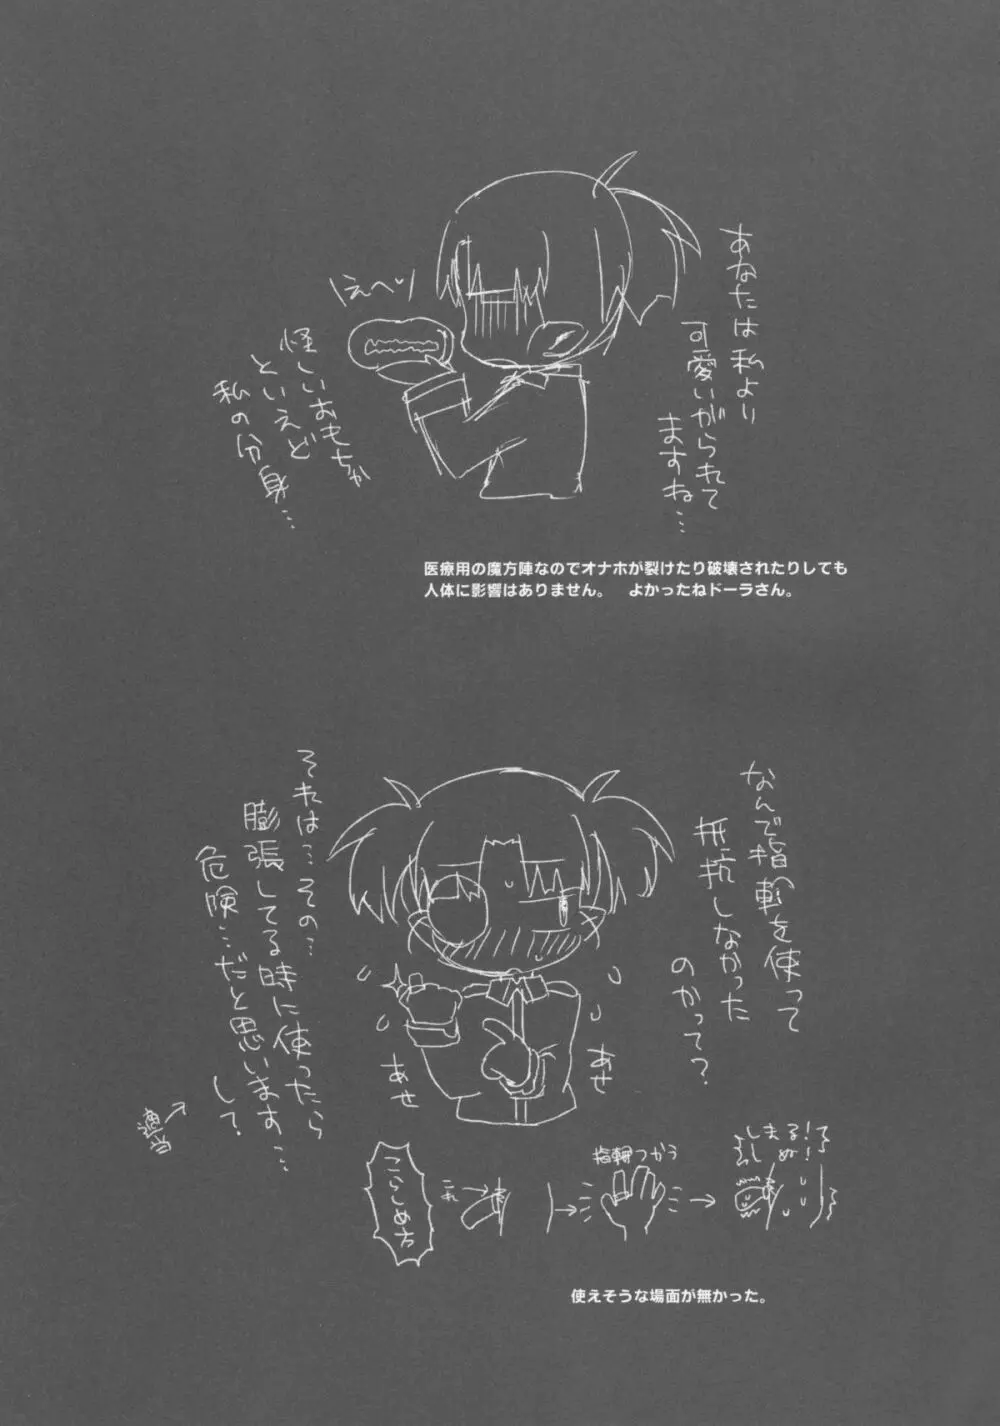 あなたは私より
可愛いがられて
ますね…
怪しいおもちゃ
といえど
私の分身…
医療用の魔方陣なのでオナホが裂けたり破壊されたりしても
人体に影響はありません。　よかったねドーラさん。
なんで指輪を使って
抵抗しなかった
のかって？
それは…その…
膨張してる時に使ったら
危険…だと思います…
して
適当
あせ
あせ
こらしめ方
これ
指輪つかう
しまる！
ししぬ！
使えそうな場面が無かった。